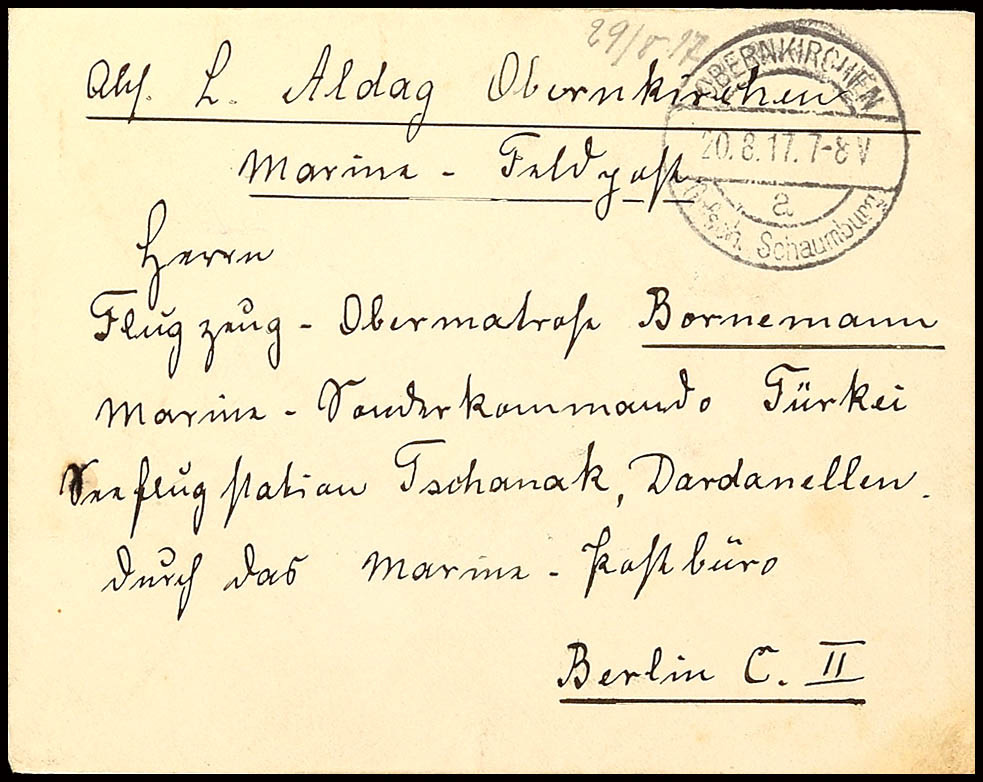 29/8.17
Abs. L. Aldag Obernkirchen
OBERNKIRCHEN
20.8.17.7-8V
a
Grfsch. Schaumburg
Marine - Feldpost
Herrn
Flugzeug - Obermatrose Bornemann
Marine - Sonderkommando Türkei
Seeflugstation Tschanak, Dardanellen.
durch das Marine - Postbüro
Berlin C. II